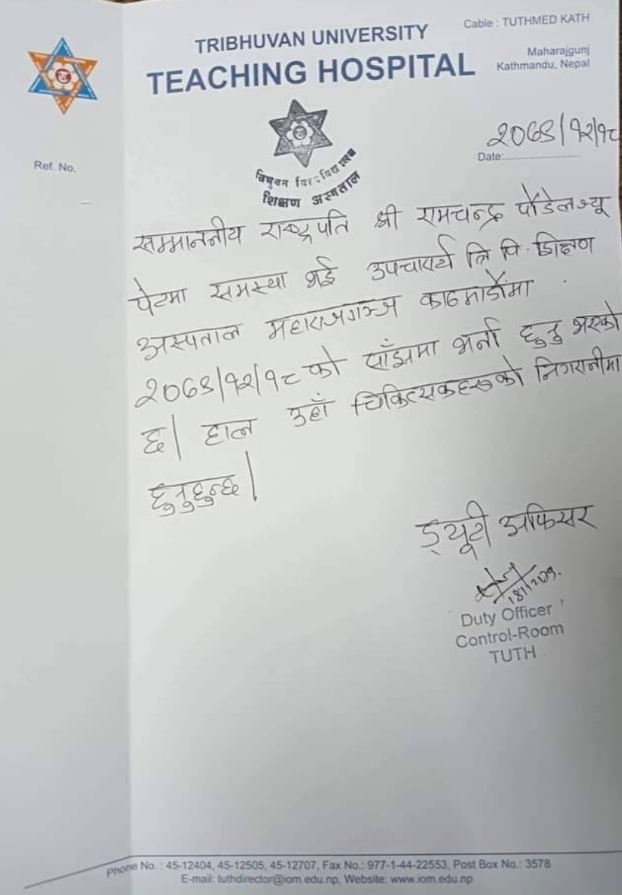 TRIBHUVAN UNIVERSITY
TEACHING HOSPITAL
Cable : TUTHMED KATH
Maharajgunj
Kathmandu, Nepal
त्रिभुवन विश्वविद्यालय
शिक्षण अस्पताल
Ref. No.
२०७९/१२/१८
Date:........................
सम्माननीय राष्ट्रपति श्री रामचन्द्र पौडेलज्यू
पेटमा समस्या भई उपचारार्थ त्रि वि. शिक्षण
अस्पताल महाराजगञ्ज काठमाडौंमा
२०७९/१२/१८ को साँझमा भर्ना हुनु भएको
छ| हाल उहाँ चिकित्सकहरुको निगरानीमा
हुनुहुन्छ|
ड्यूटी अफिसर
Duty Officer
Control-Room
TUTH
Phone No. : 45-12404, 45-12505, 45-12707, Fax No.: 977-1-44-22553, Post Box No.: 3578
E-mail: tuthdirector@iom.edu.np, Website: www.iom.edu.np